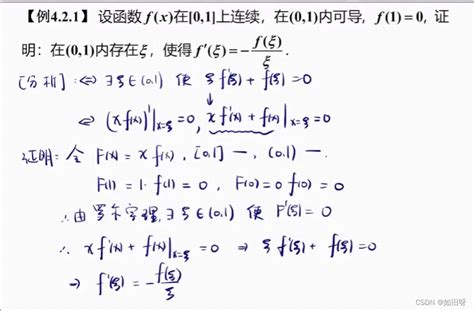 【例4.2.1】 设函数 f(x)在[0,1]上连续，在(0,1)内可导，f(1)=0，证
明：在(0,1)内存在ξ，使得 f′(ξ)=−f(ξ)/ξ.
[分析]: ⇔ ∃ξ∈(0,1) 使 ξf′(ξ)+f(ξ)=0
↓
⇔ (xf(x))′|x=ξ =0, xf′(x)+f(x)|x=ξ =0
证明: 令 F(x)=xf(x), [0,1] 一, (0,1) 一.
F(1)=1·f(1)=0, F(0)=0·f(0)=0
∴由罗尔定理, ∃ξ∈(0,1) 使 F′(ξ)=0
∴ xf′(x)+f(x)|x=ξ =0 ⇒ ξf′(ξ)+f(ξ)=0
⇒ f′(ξ)=−f(ξ)/ξ
CSDN @如旧呀